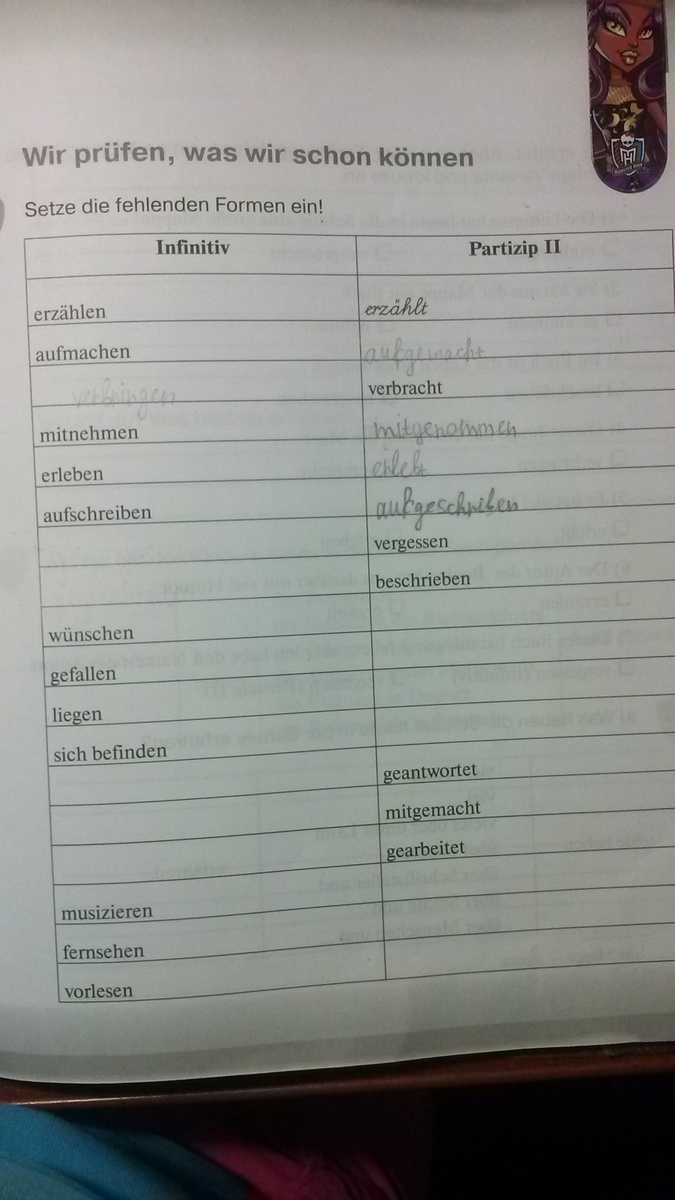 Wir prüfen, was wir schon können
Setze die fehlenden Formen ein!
Infinitiv Partizip II
erzählen erzählt
aufmachen aufgemacht
verbringen verbracht
mitnehmen mitgenommen
erleben erlebt
aufschreiben aufgeschriben
vergessen
beschrieben
wünschen
gefallen
liegen
sich befinden
geantwortet
mitgemacht
gearbeitet
musizieren
fernsehen
vorlesen